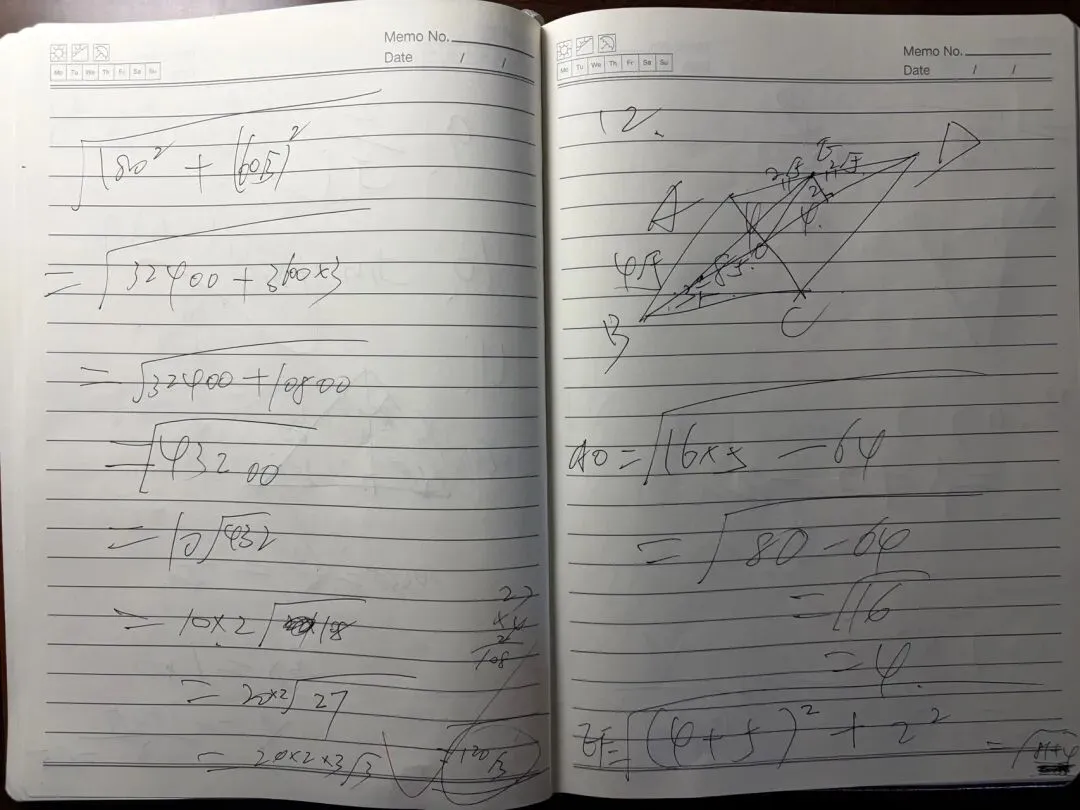 Memo No.
Date / /
Mo Tu We Th Fr Sa Su
√180² + (60√3)²
= √32400 + 3600×3
= √32400 + 10800
= √43200
= 10√432
= 10×2√108
27
×4
2
108
= 20×2√27
= 20×2×3√3 = 120√3
Memo No.
Date / /
Mo Tu We Th Fr Sa Su
12.
A
E
D
2√5
2√5
4√5
4
2
4
8
O
B
C
AO = √16×5 - 64
= √80 - 64
= √16
= 4
= √(4+5)² + 2²